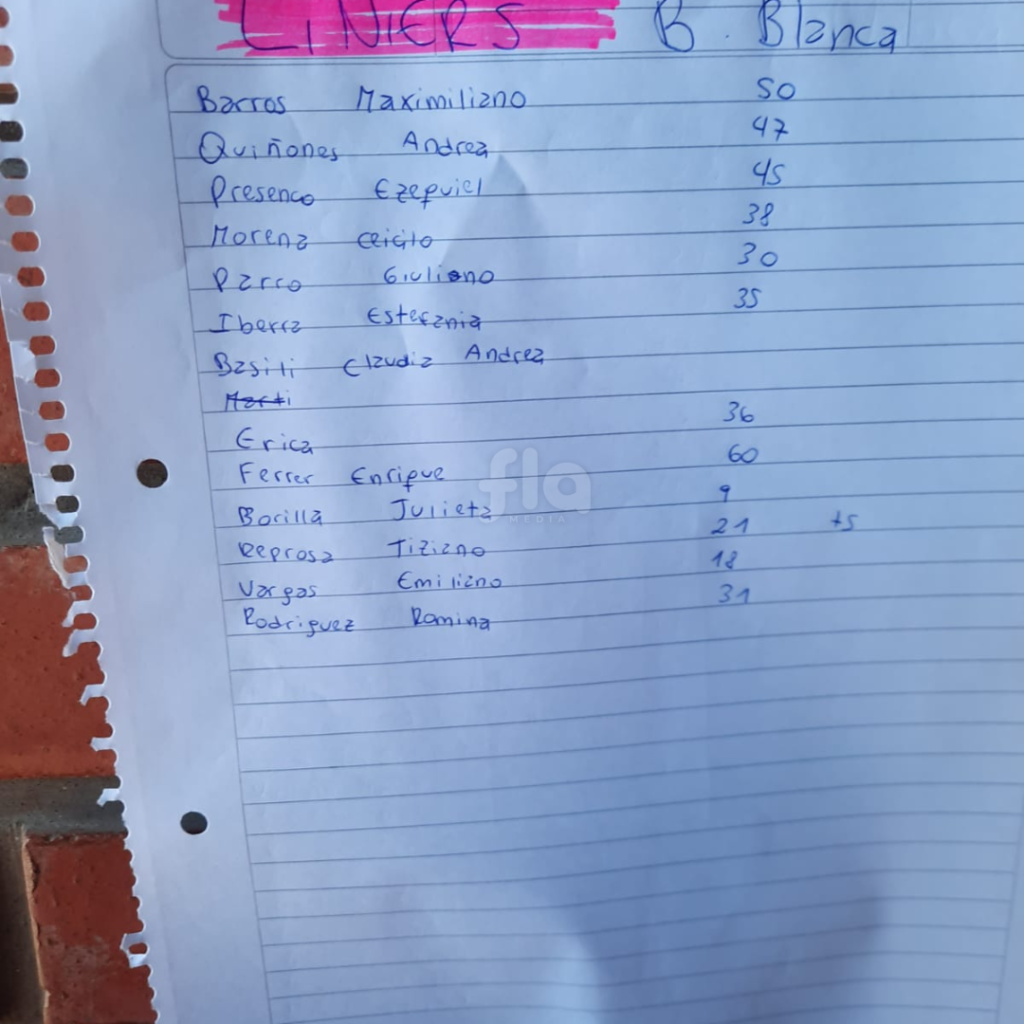 LINIERS B. Blanca
Barros Maximiliano 50
Quiñones Andrea 47
Presenco Ezequiel 45
Morena 38
Parro Giuliano 30
Ibarra Estefania 35
Basili Claudia Andrea
Marti
Erica 36
Ferrer Enrique 60
Borilla Julieta 9
Reprosa Tiziano 21 +5
Vargas Emiliano 18
Rodriguez Romina 31
fla
MEDIA